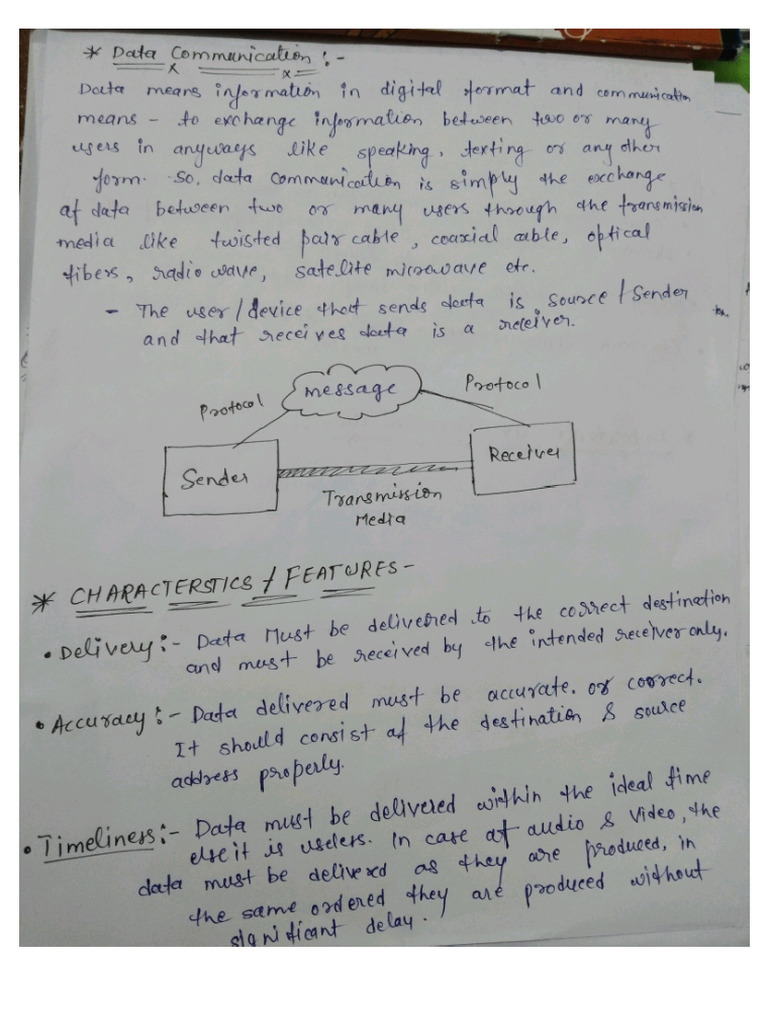 * Data Communication :-
Data means information in digital format and communication
means - to exchange information between two or many
users in anyways like speaking, texting or any other
form. So, data communication is simply the exchange
of data between two or many users through the transmission
media like twisted pair cable, coaxial cable, optical
fibers, radio wave, satelite microwave etc.
- The user/device that sends data is source/Sender
and that receives data is a receiver.
message
Protocol
Protocol
Sender
Receiver
Transmission
Media
* CHARACTERSTICS / FEATURES -
• Delivery :- Data Must be delivered to the correct destination
and must be received by the intended receiver only.
• Accuracy :- Data delivered must be accurate. or correct.
It should consist of the destination & source
address properly.
• Timeliness :- Data must be delivered within the ideal time
else it is useless. In case of audio & video, the
data must be delivered as they are produced, in
the same ordered they are produced without
significant delay.